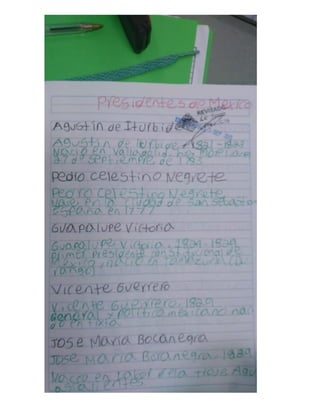 Presidentes de México
REVISADO
Agustín de Iturbide
Agustín de Iturbide 1821-1823
Nacio en Valladolid hoy
27 de septiembre de 1783
Pedro Celestino Negrete
Pedro Celestino Negrete
en la ciudad de San
España en 1777
Guadalupe Victoria
Guadalupe Victoria 1824-1829
Primer Presidente constitucional de
México
rango)
Vicente Guerrero
Vicente Guerrero 1829
General y Politico mexicano naci
do en tixtla
Jose Maria Bocanegra
Jose Maria Bocanegra 1829
Nacio en labor de la troje Agu
ascalientes